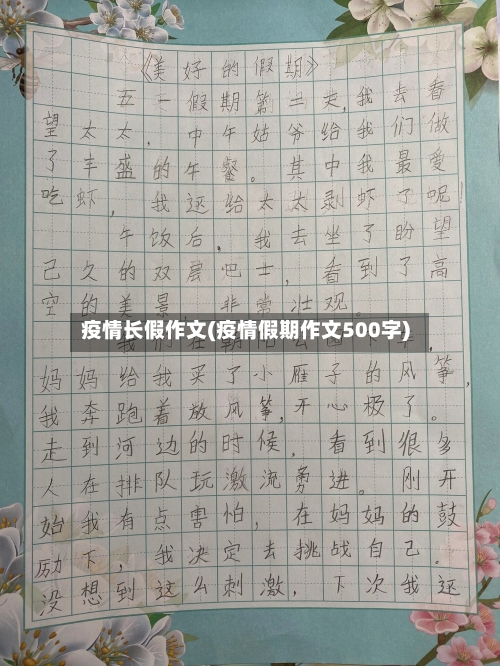 《美好的假期》
五一假期第二天,我去看
望太太。中午姑爷给我们做
了丰盛的午餐。其中我最爱
吃虾,我还给太太剥虾了呢!
午饭后,我去坐了盼望
己久的双层巴士,看到了高
空的美景,非常壮观。
疫情长假作文(疫情假期作文500字)
妈妈给我买了小雁子的风筝,
我奔跑着放风筝,开心极了。
走到河边的时候,看到很多
人在排队玩激流勇进。刚开
始我有点害怕,在妈妈的鼓
励下,我决定去挑战自己。
没想到这么刺激,下次我还